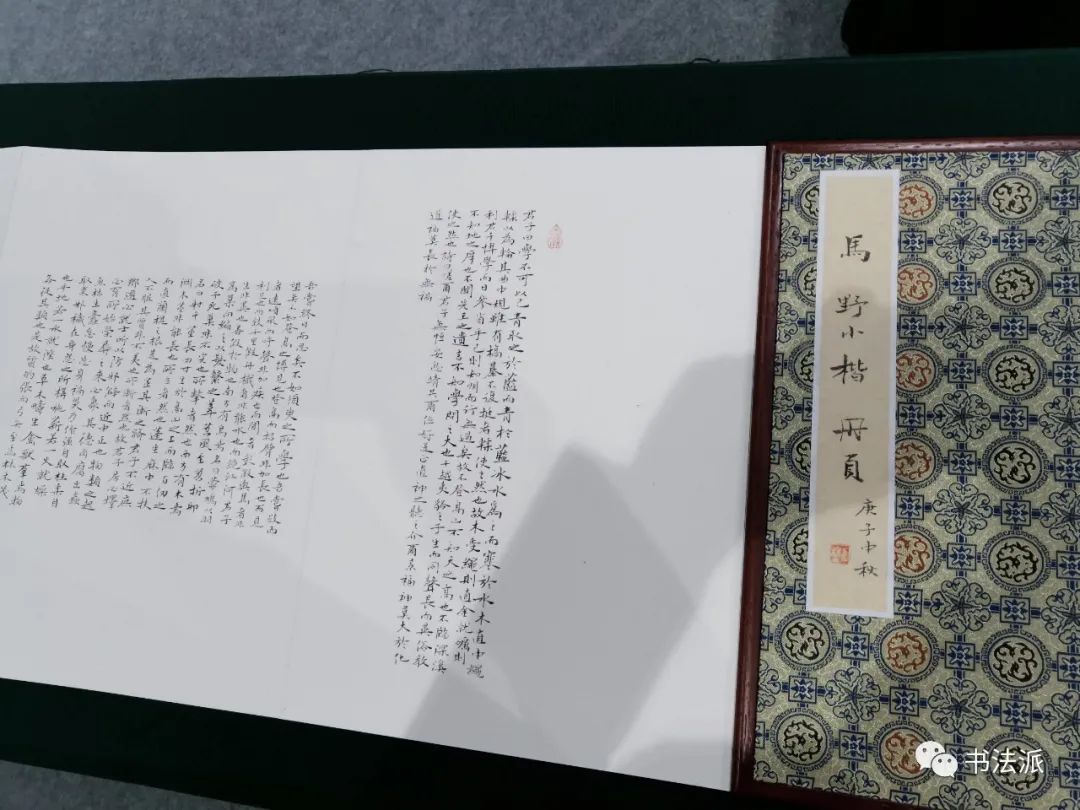 馬野小楷 冊頁
庚子中秋
君子曰學不可以已青取之於藍而青於藍冰水為之而寒於水木直中繩
輮以為輪其曲中規雖有槁暴不復挺者輮使之然也故木受繩則直金就礪則
利君子博學而日參省乎己則知明而行無過矣故不登高山不知天之高也不臨深溪
不知地之厚也不聞先王之遺言不知學問之大也干越夷貉之子生而同聲長而異俗教
使之然也詩曰嗟爾君子無恒安息靖共爾位好是正直神之聽之介爾景福神莫大於化
道福莫長於無禍
吾嘗終日而思矣不如須臾之所學也吾嘗跂而
望矣不如登高之博見也登高而招臂非加長也而見
者遠順風而呼聲非加疾也而聞者彰假輿馬者非
利足也而致千里假舟楫者非能水也而絕江河君子
生非異也善假於物也南方有鳥焉名曰蒙鳩以羽
為巢而編之以髮繫之葦苕風至苕折卵
破子死巢非不完也所繫者然也西方有木焉
名曰射干莖長四寸生於高山之上而臨百仞之
淵木莖非能長也所立者然也蓬生麻中不扶
而直蘭槐之根是為芷其漸之滫君子不近庶
人不服其質非不美也所漸者然也故君子居必擇
鄉遊必就士所以防邪僻而近中正也物類之起
必有所始榮辱之來必象其德肉腐出蟲
魚枯生蠹怠慢忘身禍災乃作強自取柱柔自
取束邪穢在身怨之所構施薪若一火就燥
也平地若一水就濕也草木疇生禽獸群焉物
各從其類也是故質的張而弓矢至焉林木茂
书法派